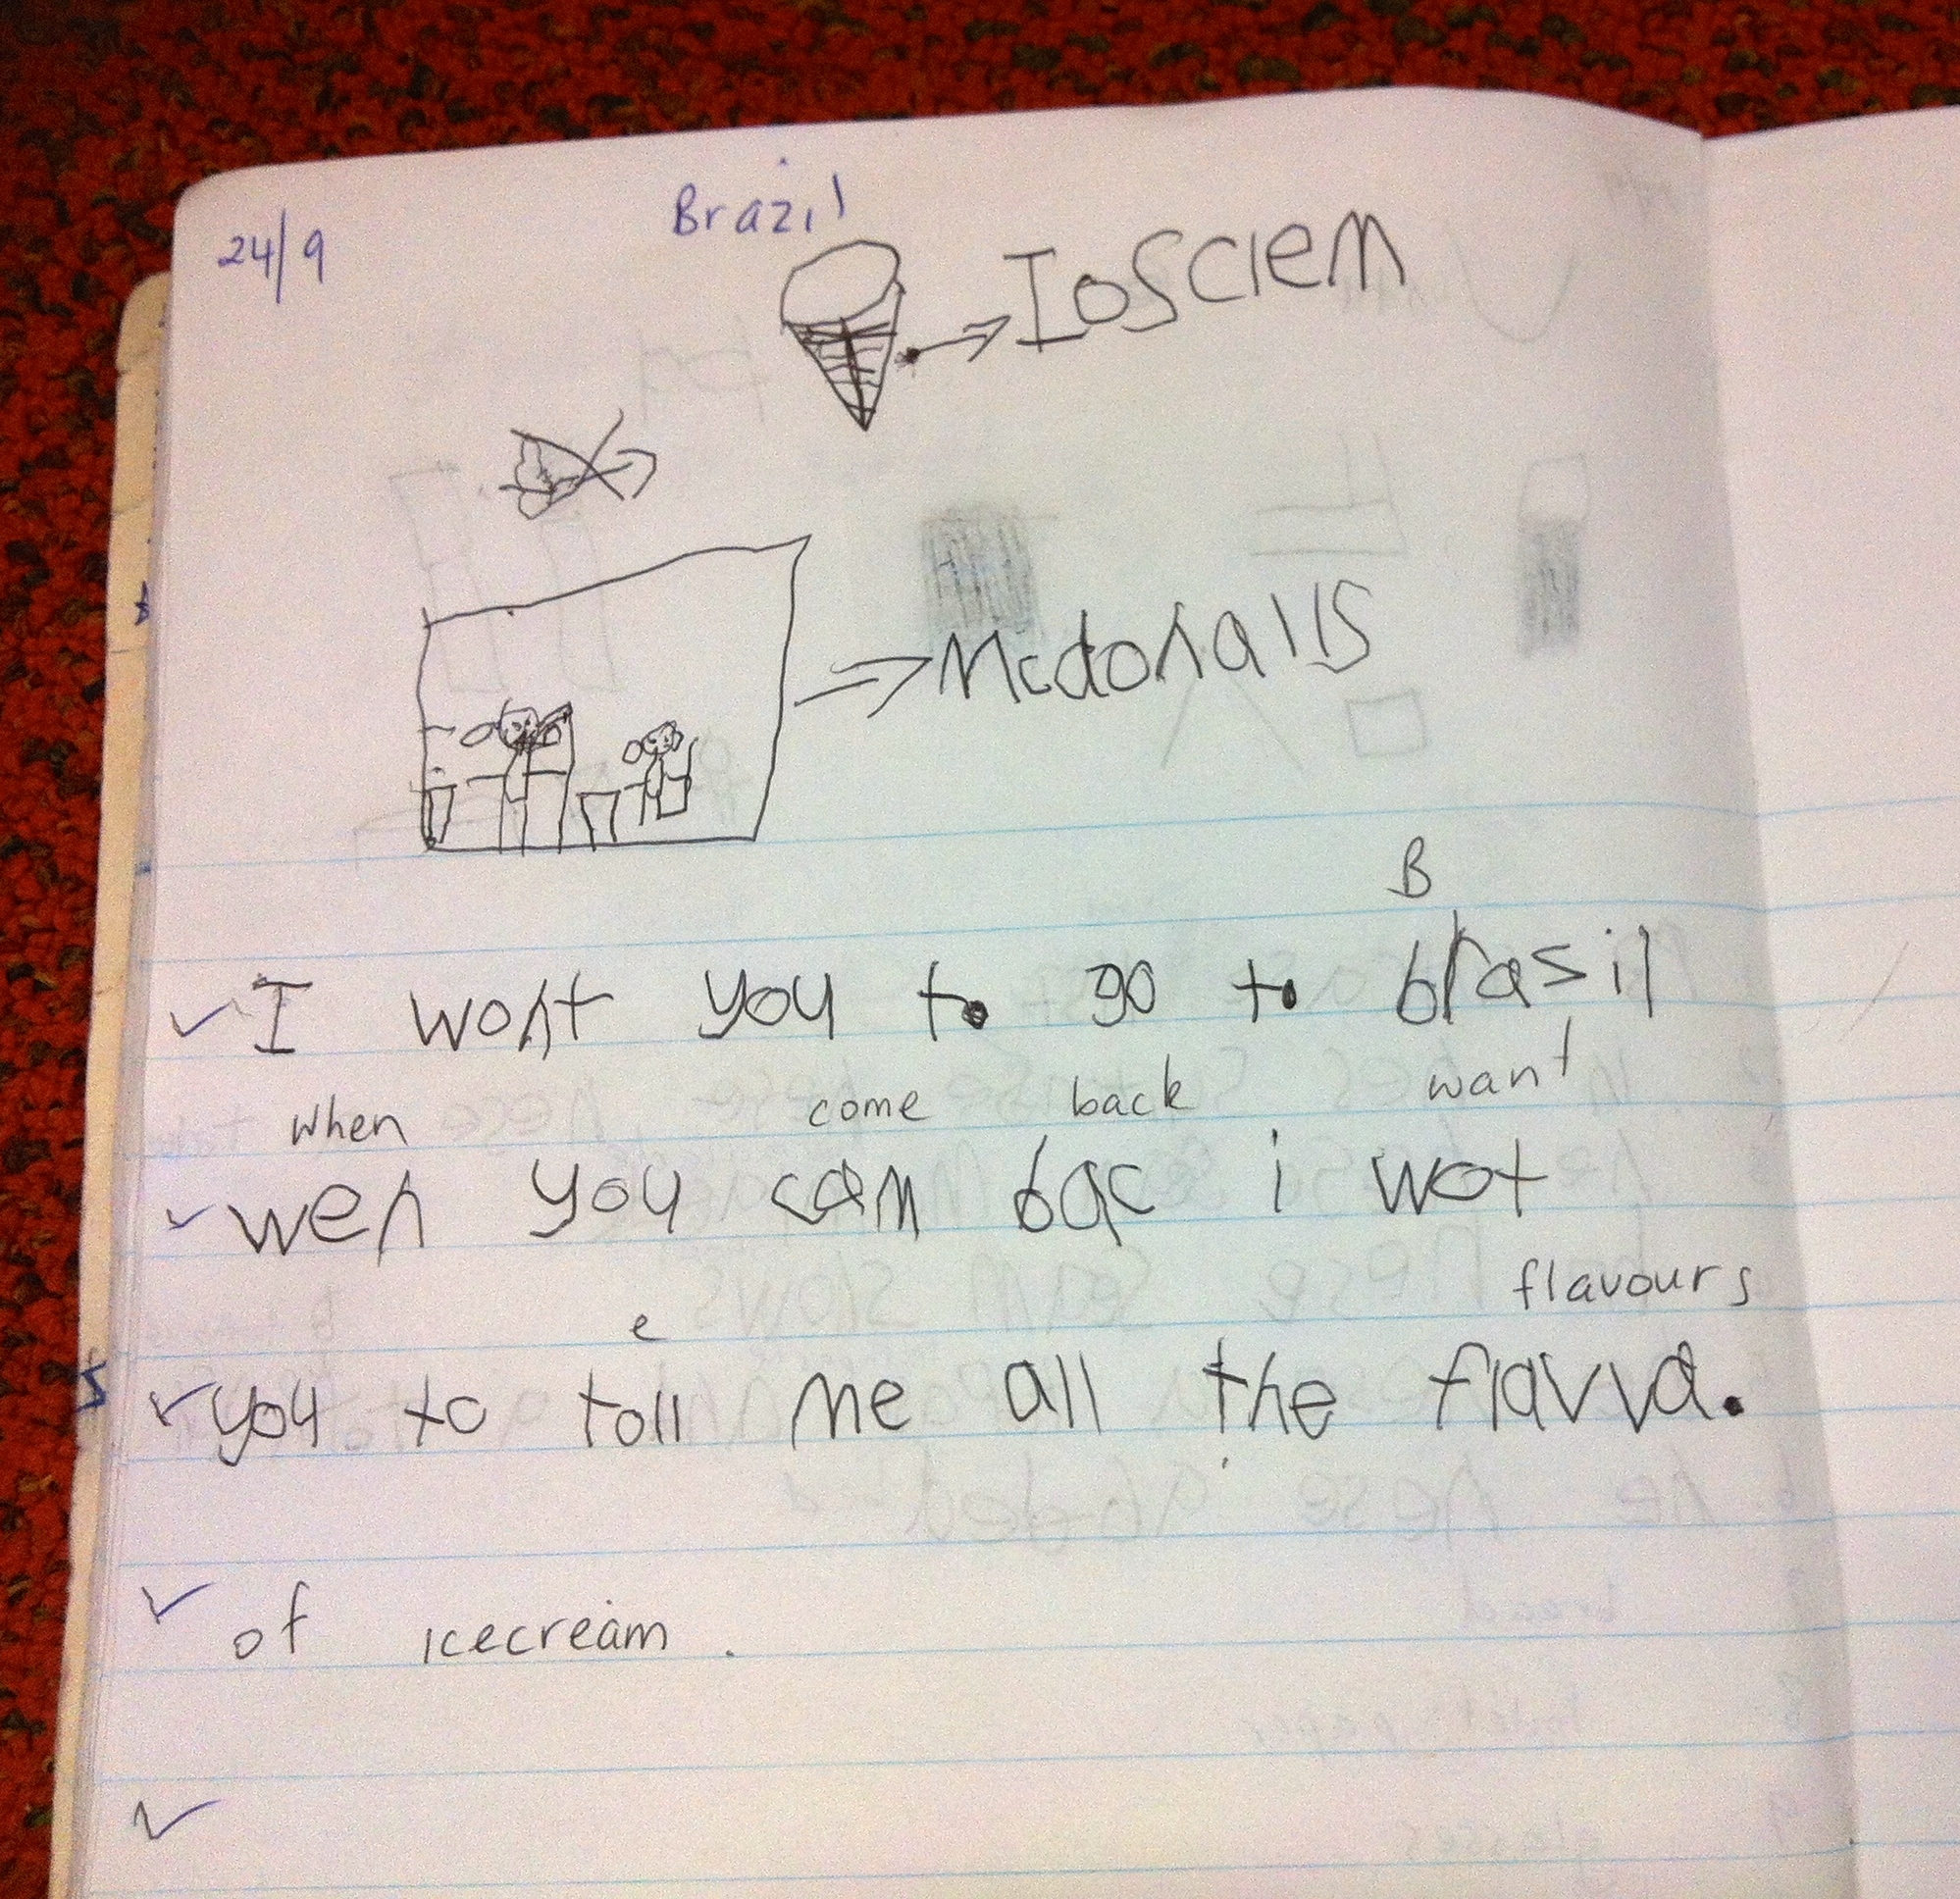 Brazil
24/9
Iosciem
Mcdonalls
B
I wont you to go to brasil
when come back want
wen you cam bac i wot
e flavours
you to toll me all the flavva.
of icecream.